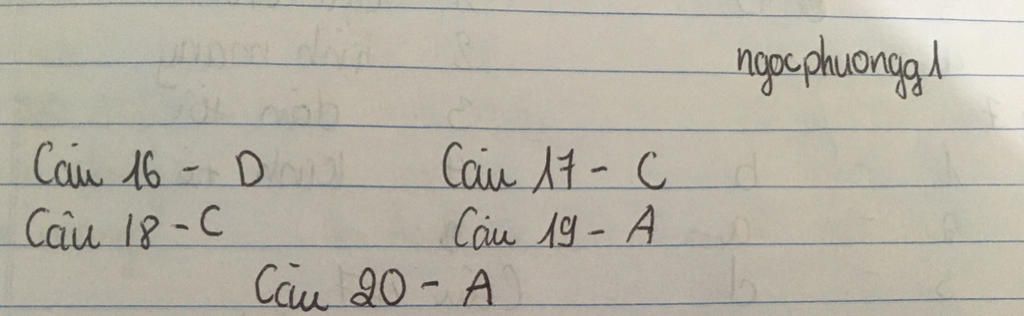 ngocphuongg1
Câu 16 - D Câu 17 - C
Câu 18 - C Câu 19 - A
Câu 20 - A